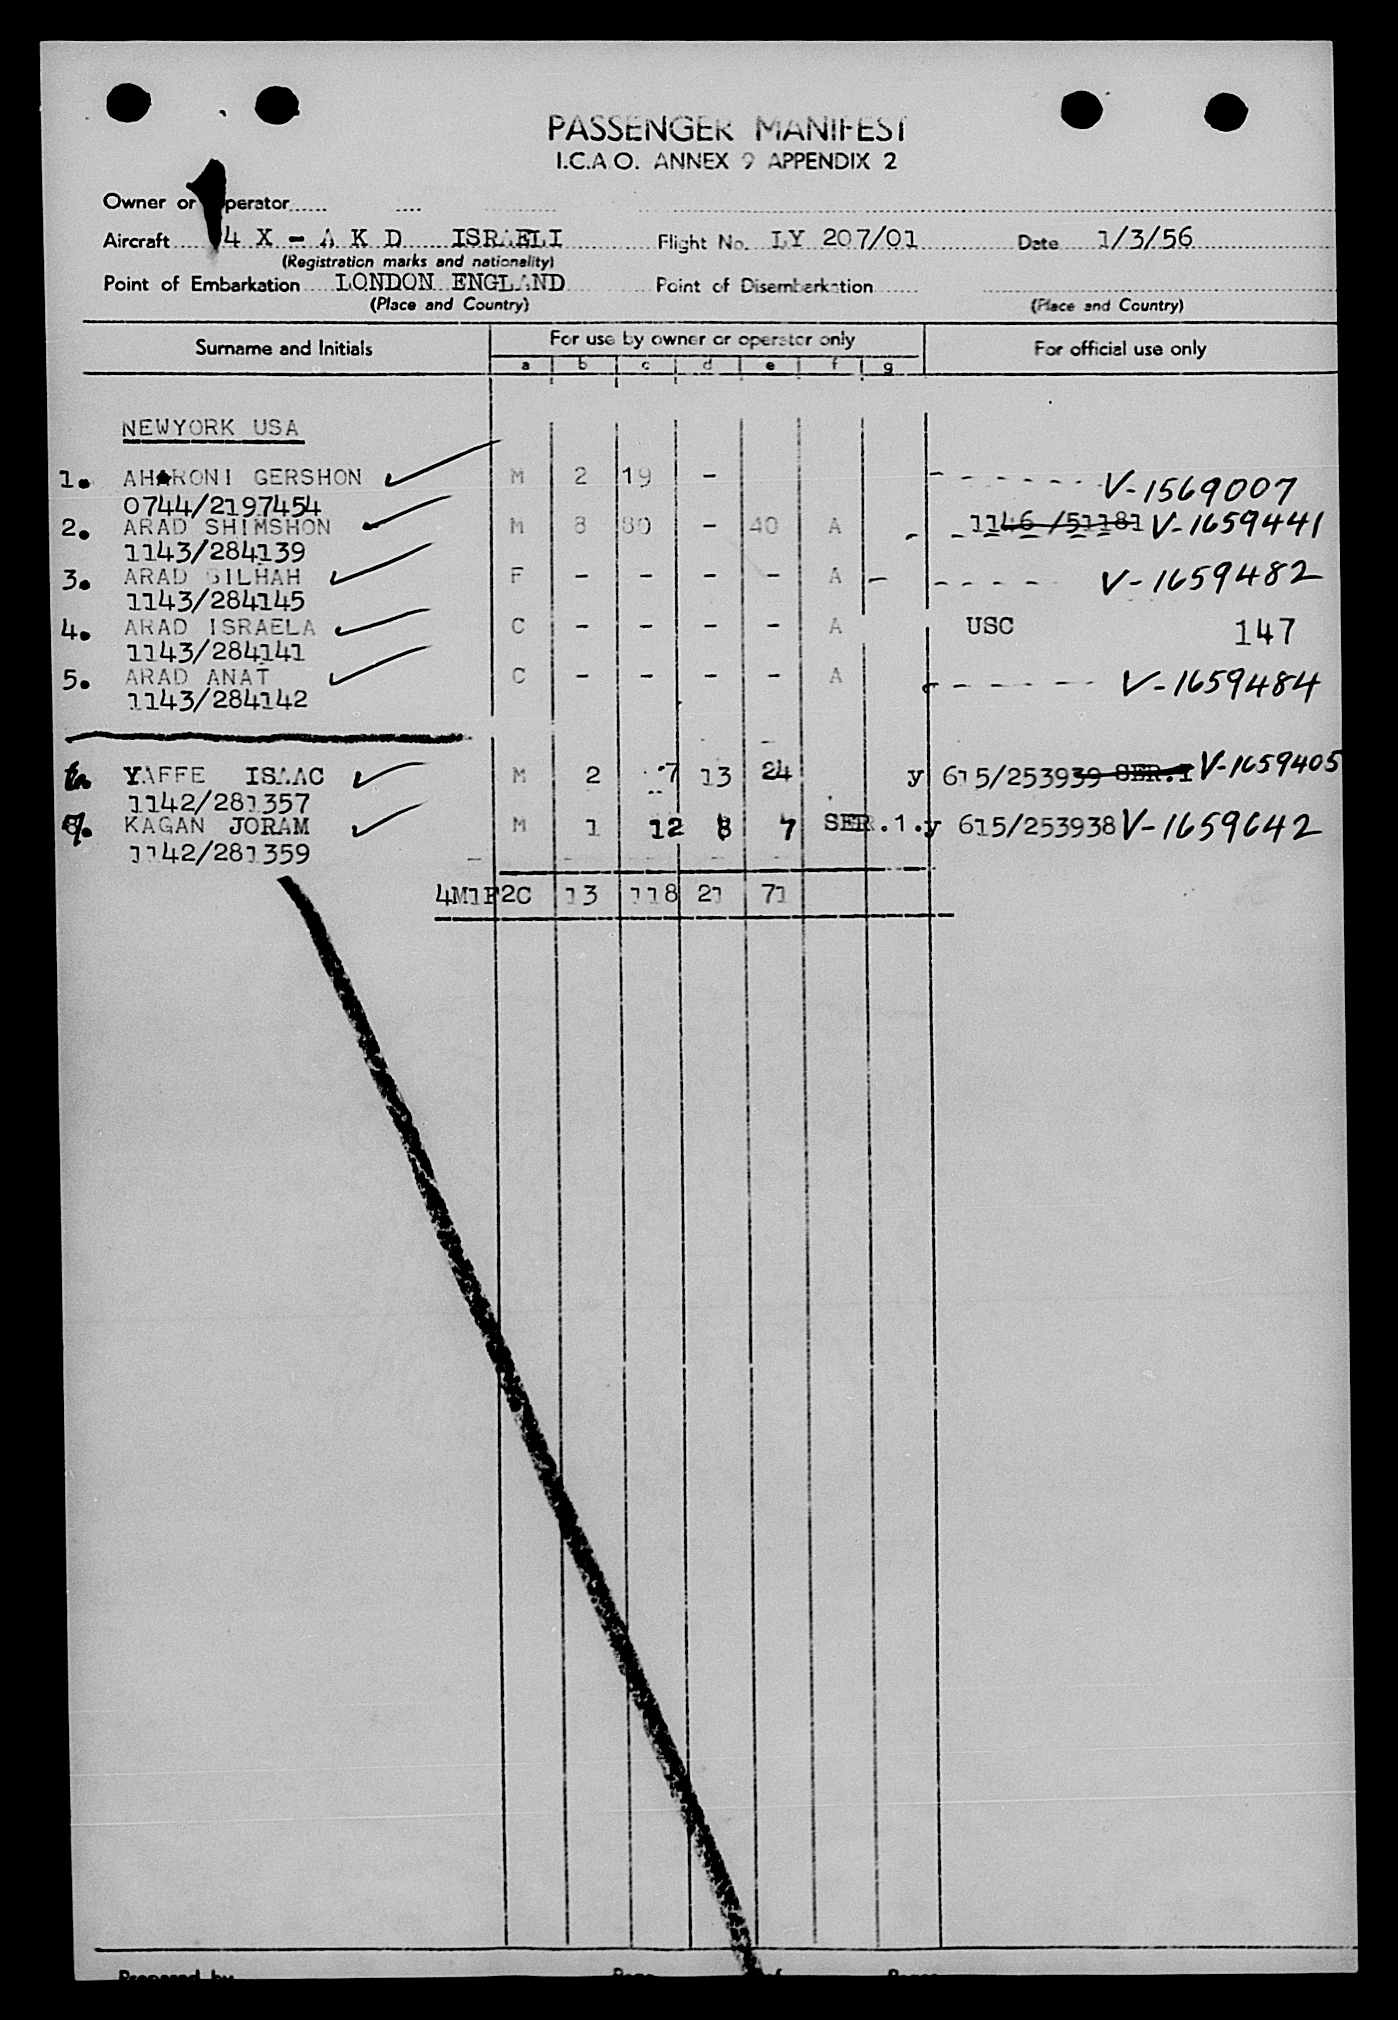 PASSENGER MANIFEST
I.C.A.O. ANNEX 9 APPENDIX 2
Owner or Operator
Aircraft 4 X - A K D ISRAELI Flight No. LY 207/01 Date 1/3/56
(Registration marks and nationality)
Point of Embarkation LONDON ENGLAND Point of Disembarkation
(Place and Country) (Place and Country)
Surname and Initials For use by owner or operator only For official use only
a b c d e f g
NEWYORK USA
1. AHARONI GERSHON M 2 19 - V-1569007
0744/2197454
2. ARAD SHIMSHON M 8 80 - 40 A 1146/51181 V-1659441
1143/284139
3. ARAD GILHAH F - - - - A V-1659482
1143/284145
4. ARAD ISRAELA C - - - - A USC 147
1143/284141
5. ARAD ANAT C - - - - A V-1659484
1143/284142
YAFFE ISAAC M 2 7 13 24 y 615/253939 SER.1 V-1659405
1142/281357
KAGAN JORAM M 1 12 8 7 SER.1.y 615/253938 V-1659642
1142/281359
4M1F2C 13 118 21 71
Prepared by Page of Pages